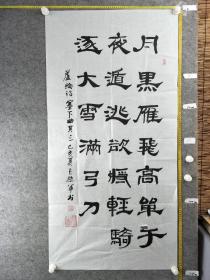 月黑雁飛高單于
夜遁逃欲將輕騎
逐大雪滿弓刀
盧綸詩塞下曲其三己亥夏